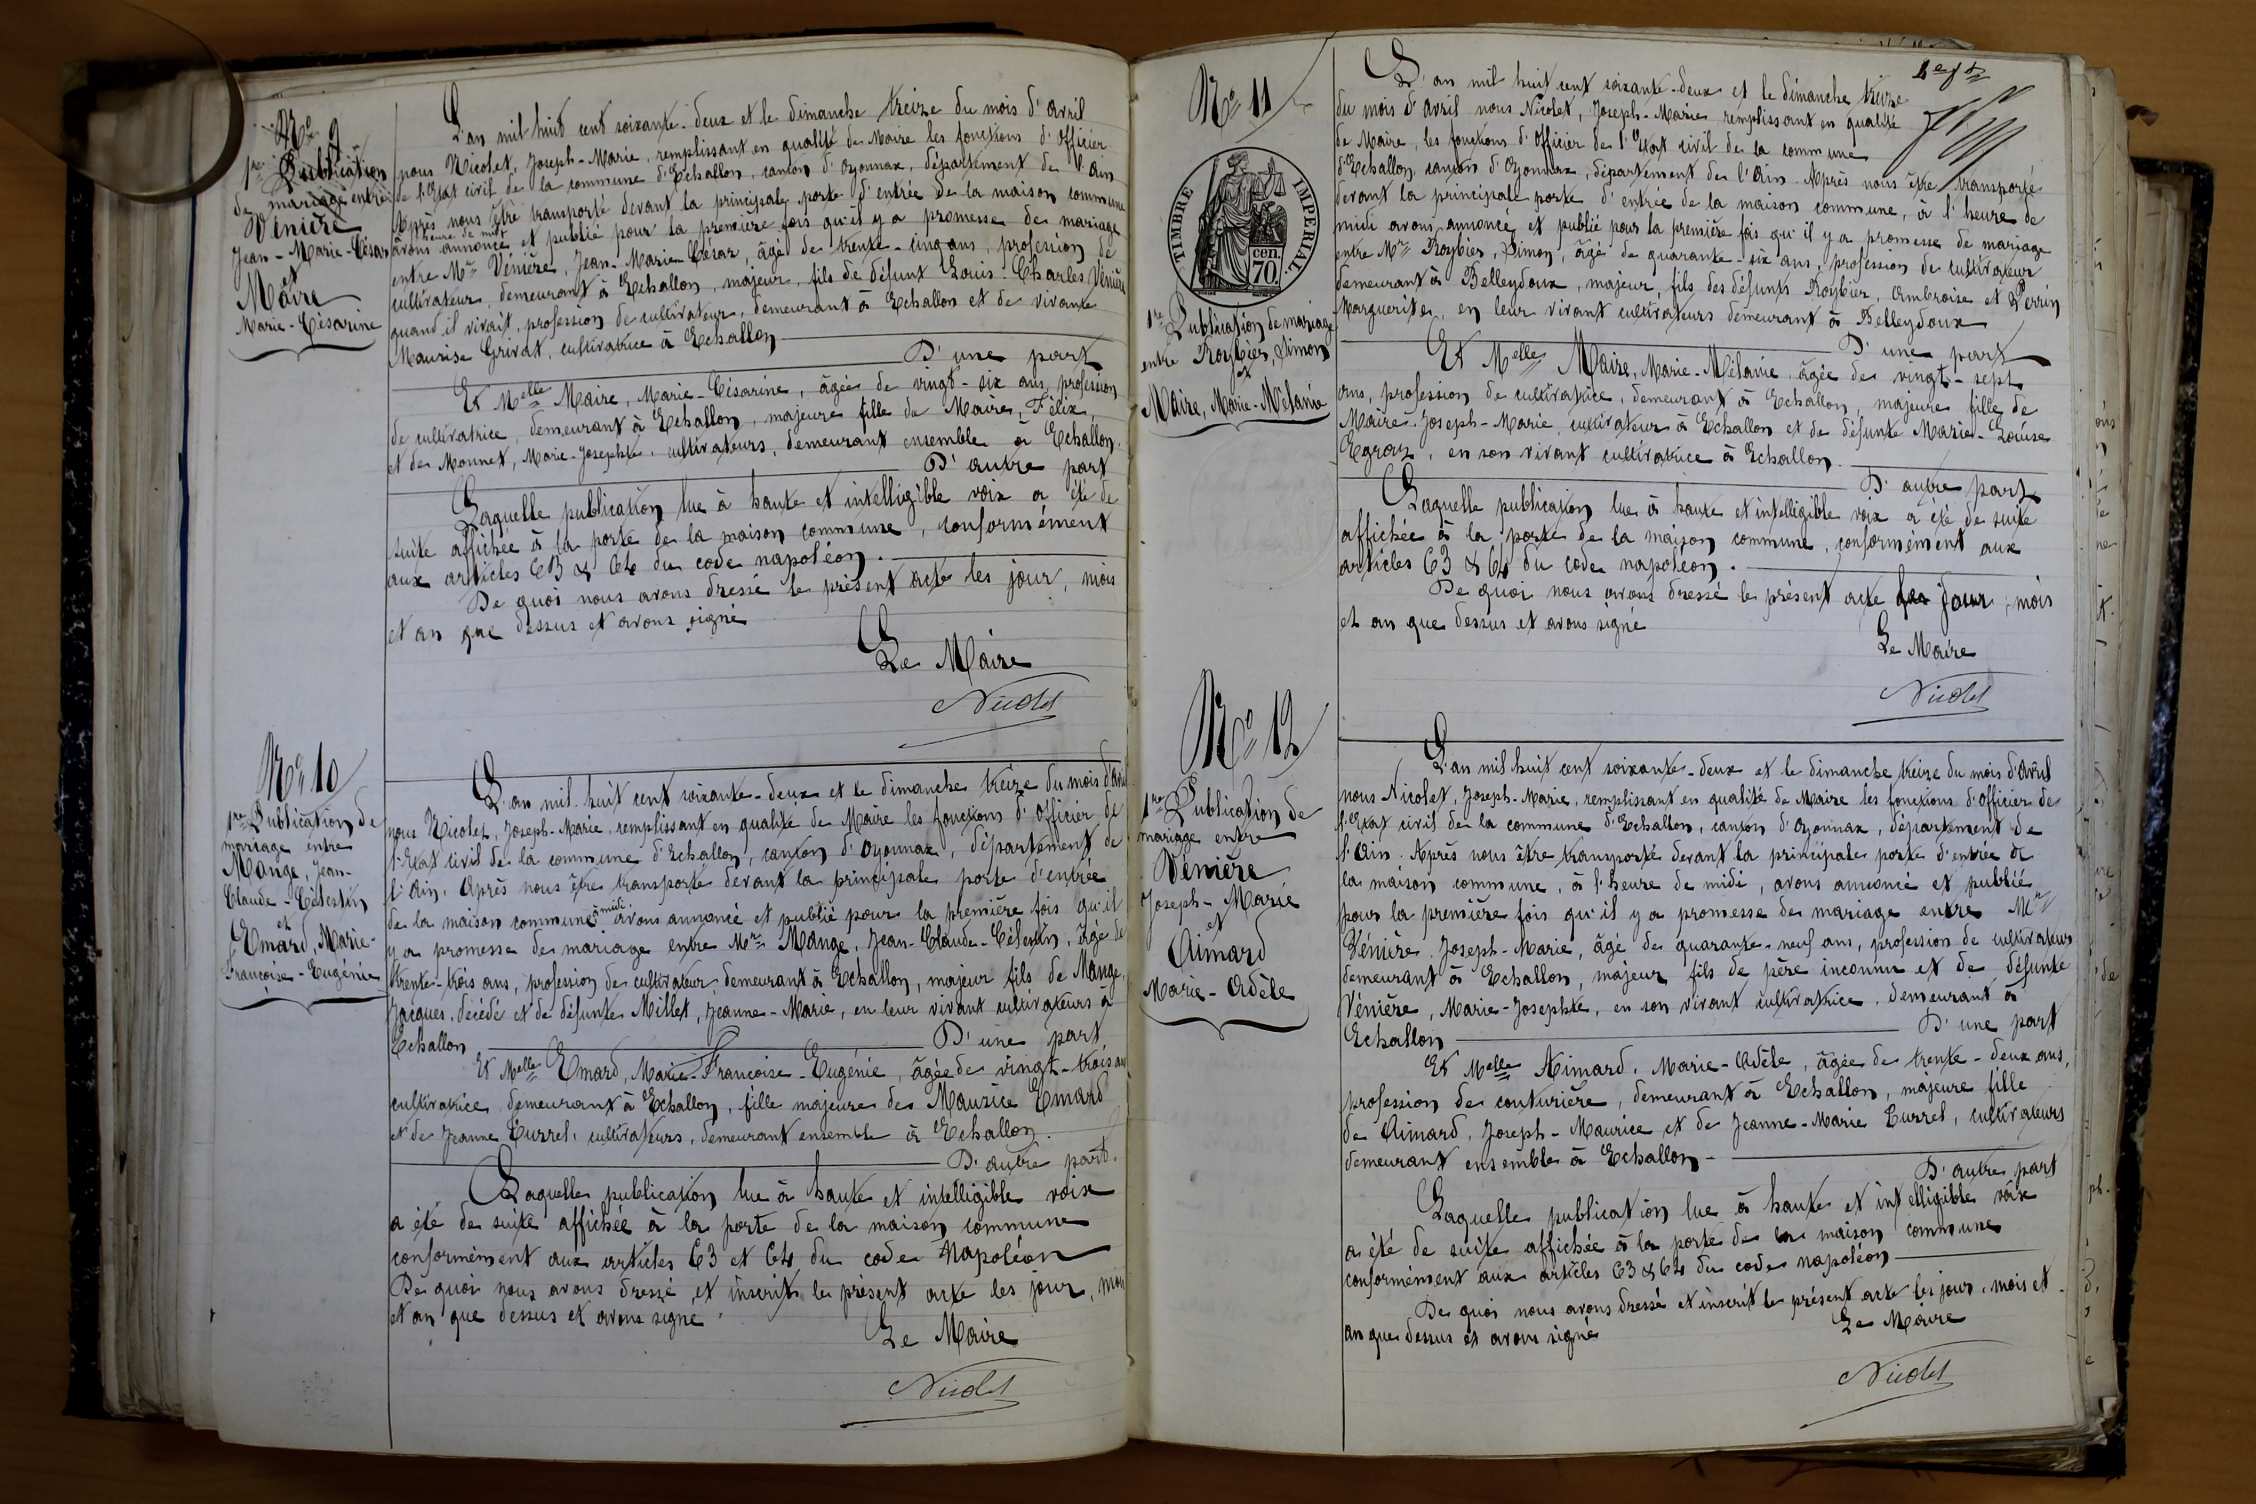 N° 9
1re Publication
de mariage entre
Vénière
Jean-Marie-César
et
Maire
Marie-Césarine
L'an mil huit cent soixante-deux et le dimanche treize du mois d'avril
nous Nicolet, Joseph-Marie, remplissant en qualité de Maire les fonctions d'Officier
de l'Etat civil de la commune d'Echallon, canton d'Oyonnax, département de l'Ain
Après nous être transporté devant la principale porte d'entrée de la maison commune
heure de midi
avons annoncé et publié pour la première fois qu'il y a promesse de mariage
entre Mr Vénière, Jean-Marie César, âgé de trente-cinq ans, profession de
cultivateur, demeurant à Echallon, majeur, fils de défunt Louis-Charles Vénière
quand il vivait, profession de cultivateur, demeurant à Echallon et de vivante
Maurise Grivat, cultivatrice à Echallon
D'une part
Et Melle Maire, Marie-Césarine, âgée de vingt-six ans, profession
de cultivatrice, demeurant à Echallon, majeure fille de Maire, Félix,
et de Monnet, Marie-Josephte, cultivateurs, demeurant ensemble à Echallon.
D'autre part
Laquelle publication lue à haute et intelligible voix a été de
suite affichée à la porte de la maison commune, conformément
aux articles 63 & 64 du code napoléon.
De quoi nous avons dressé le présent acte les jour, mois
et an que dessus et avons signé
Le Maire
Nicolet
N° 10
1re Publication de
mariage entre
Mange, Jean-
Claude-Célestin
et
Emard, Marie-
Françoise-Eugénie
L'an mil huit cent soixante-deux et le dimanche treize du mois d'avril
nous Nicolet, Joseph-Marie, remplissant en qualité de Maire les fonctions d'Officier de
l'Etat civil de la commune d'Echallon, canton d'Oyonnax, département de
l'Ain. Après nous être transporté devant la principale porte d'entrée
de la maison commune à midi avons annoncé et publié pour la première fois qu'il
y a promesse de mariage entre Mr Mange, Jean-Claude-Célestin, âgé de
trente-trois ans, profession de cultivateur demeurant à Echallon, majeur fils de Mange,
Jacques, décédé et de défunte Millet, Jeanne-Marie, en leur vivant cultivateurs à
Echallon D'une part
Et Melle Emard, Marie-Françoise-Eugénie, âgée de vingt-trois ans
cultivatrice demeurant à Echallon, fille majeure de Maurice Emard
et de Jeanne Burret, cultivateurs, demeurant ensemble à Echallon.
D'autre part.
Laquelle publication lue à haute et intelligible voix
a été de suite affichée à la porte de la maison commune
conformément aux articles 63 et 64 du code Napoléon
De quoi nous avons dressé et inscrit le présent acte les jour, mois
et an que dessus et avons signé.
Le Maire
Nicolet
N° 11
TIMBRE IMPERIAL.
cen.
70.
1re Publication de mariage
entre Roybier, Simon
et
Maire, Marie-Mélanie
L'an mil huit cent soixante-deux et le dimanche treize
du mois d'avril nous Nicolet, Joseph-Marie remplissant en qualité
de Maire, les fonctions d'Officier de l'Etat civil de la commune
d'Echallon, canton d'Oyonnax, département de l'Ain. Après nous être transporté
devant la principale porte d'entrée de la maison commune, à l'heure de
midi avons annoncé et publié pour la première fois qu'il y a promesse de mariage
entre Mr Roybier, Simon, âgé de quarante-six ans, profession de cultivateur
demeurant à Belleydoux, majeur, fils des défunts Roybier, Ambroise et Perrin
Marguerite, en leur vivant cultivateurs demeurant à Belleydoux
D'une part
Et Melle Maire, Marie-Mélanie, âgée de vingt-sept
ans, profession de cultivatrice, demeurant à Echallon, majeure fille de
Maire, Joseph-Marie, cultivateur à Echallon et de défunte Marie-Louise
Egraz, en son vivant cultivatrice à Echallon.
D'autre part
Laquelle publication lue à haute et intelligible voix a été de suite
affichée à la porte de la maison commune, conformément aux
articles 63 & 64 du code napoléon.
De quoi nous avons dressé le présent acte les jour, mois
et an que dessus et avons signé
Le Maire
Nicolet
N° 12
1re Publication de
mariage entre
Vénière
Joseph-Marie
et
Aimard
Marie-Adèle
L'an mil huit cent soixante-deux et le dimanche treize du mois d'Avril
nous Nicolet, Joseph-Marie, remplissant en qualité de Maire les fonctions d'Officier de
l'Etat civil de la commune d'Echallon, canton d'Oyonnax, département de
l'Ain. Après nous être transporté devant la principale porte d'entrée de
la maison commune, à l'heure de midi, avons annoncé et publié
pour la première fois qu'il y a promesse de mariage entre Mr
Vénière, Joseph-Marie, âgé de quarante-neuf ans, profession de cultivateur
demeurant à Echallon, majeur fils de père inconnu et de défunte
Vénière, Marie-Josephte, en son vivant cultivatrice, demeurant à
Echallon D'une part
Et Melle Aimard, Marie-Adèle, âgée de trente-deux ans,
profession de couturière, demeurant à Echallon, majeure fille
de Aimard, Joseph-Maurice et de Jeanne-Marie Burret, cultivateurs
demeurant ensemble à Echallon-
D'autre part
Laquelle publication lue à haute et intelligible voix
a été de suite affichée à la porte de la maison commune
conformément aux articles 63 & 64 du code napoléon
De quoi nous avons dressé et inscrit le présent acte les jour, mois et
an que dessus et avons signé
Le Maire
Nicolet